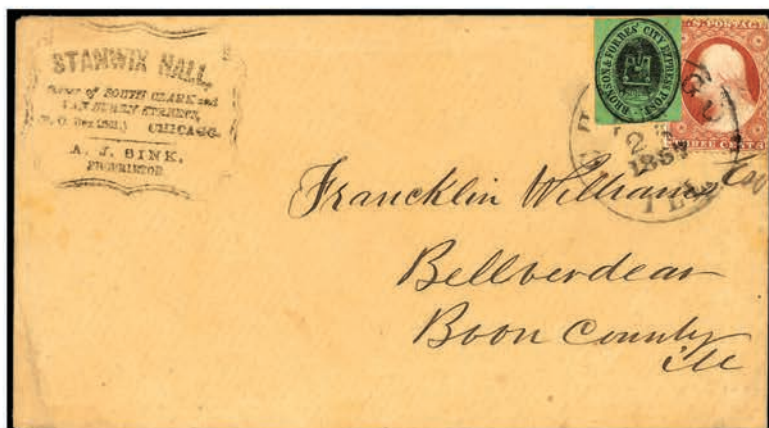 STANWIX HALL,
Corner of SOUTH CLARK and
VAN BUREN STREETS,
CHICAGO.
A. J. SINK,
PROPRIETOR
BRONSON & FORBES' CITY EXPRESS POST
THREE CENTS
1857
ILL
Francklin Williams
Bellverdear
Boon County
ill